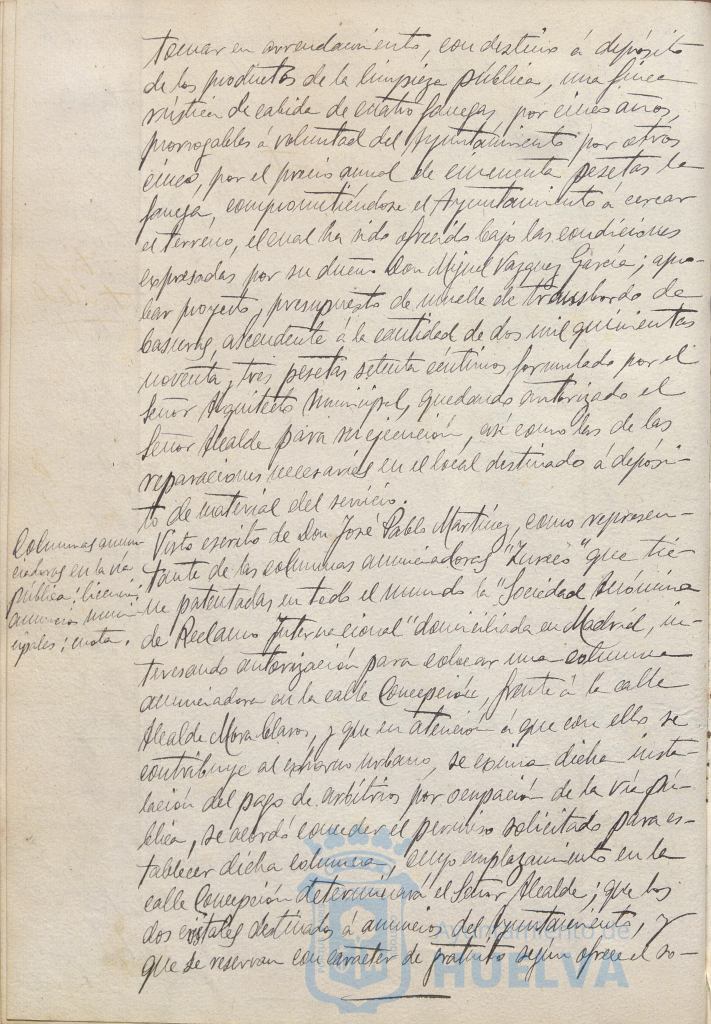 tomar en arrendamiento, con destino á depósito
de los productos de la limpieza pública, una finca
rústica de cabida de cuatro fanegas por cinco años,
prorrogables á voluntad del Ayuntamiento por otros
cinco, por el precio anual de cincuenta pesetas la
fanega, comprometiéndose el Ayuntamiento á cercar
el terreno, el cual ha sido ofrecido bajo las condiciones
expresadas por su dueño Don Miguel Vazquez García; apro-
bar proyecto, presupuesto de muelle de transbordo de
basuras, ascendente á la cantidad de dos mil quinientas
noventa y tres pesetas setenta céntimos formulado por el
Señor Arquitecto Municipal, quedando autorizado el
Señor Alcalde para su ejecución, asi como las de las
reparaciones necesarias en el local destinado á depósi-
to de material del servicio.
Columnas anun-
ciadoras en la vía
pública; licencia,
anuncios muni-
cipales; nota.
Visto escrito de Don José Pablo Martínez, como represen-
tante de las columnas anunciadoras que tie-
ne patentadas en todo el mundo la "Sociedad Anónima
de Reclamo Internacional" domiciliada en Madrid, in-
teresando autorización para colocar una columna
anunciadora en la calle Concepción, frente á la calle
Alcalde Mora Claros, y que en atencion á que con ello se
contribuye al exhorno urbano, se exima dicha insta-
lación del pago de arbitrios por ocupación de la vía pú-
blica, se acordó conceder el permiso solicitado para es-
tablecer dicha columna, cuyo emplazamiento en la
calle Concepción determinará el Señor Alcalde; que los
dos cristales destinados á anuncios del Ayuntamiento, y
que se reservan con carácter de gratuito según ofrece el so-
Ayuntamiento de
HUELVA